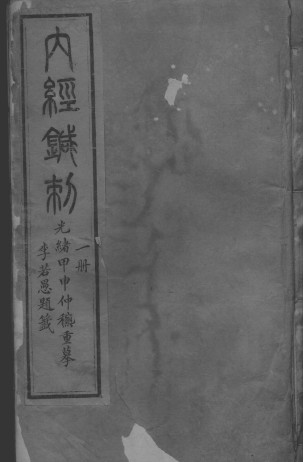 內經鍼刺
一冊
光緒甲申仲穐重摹
李若愚題籤